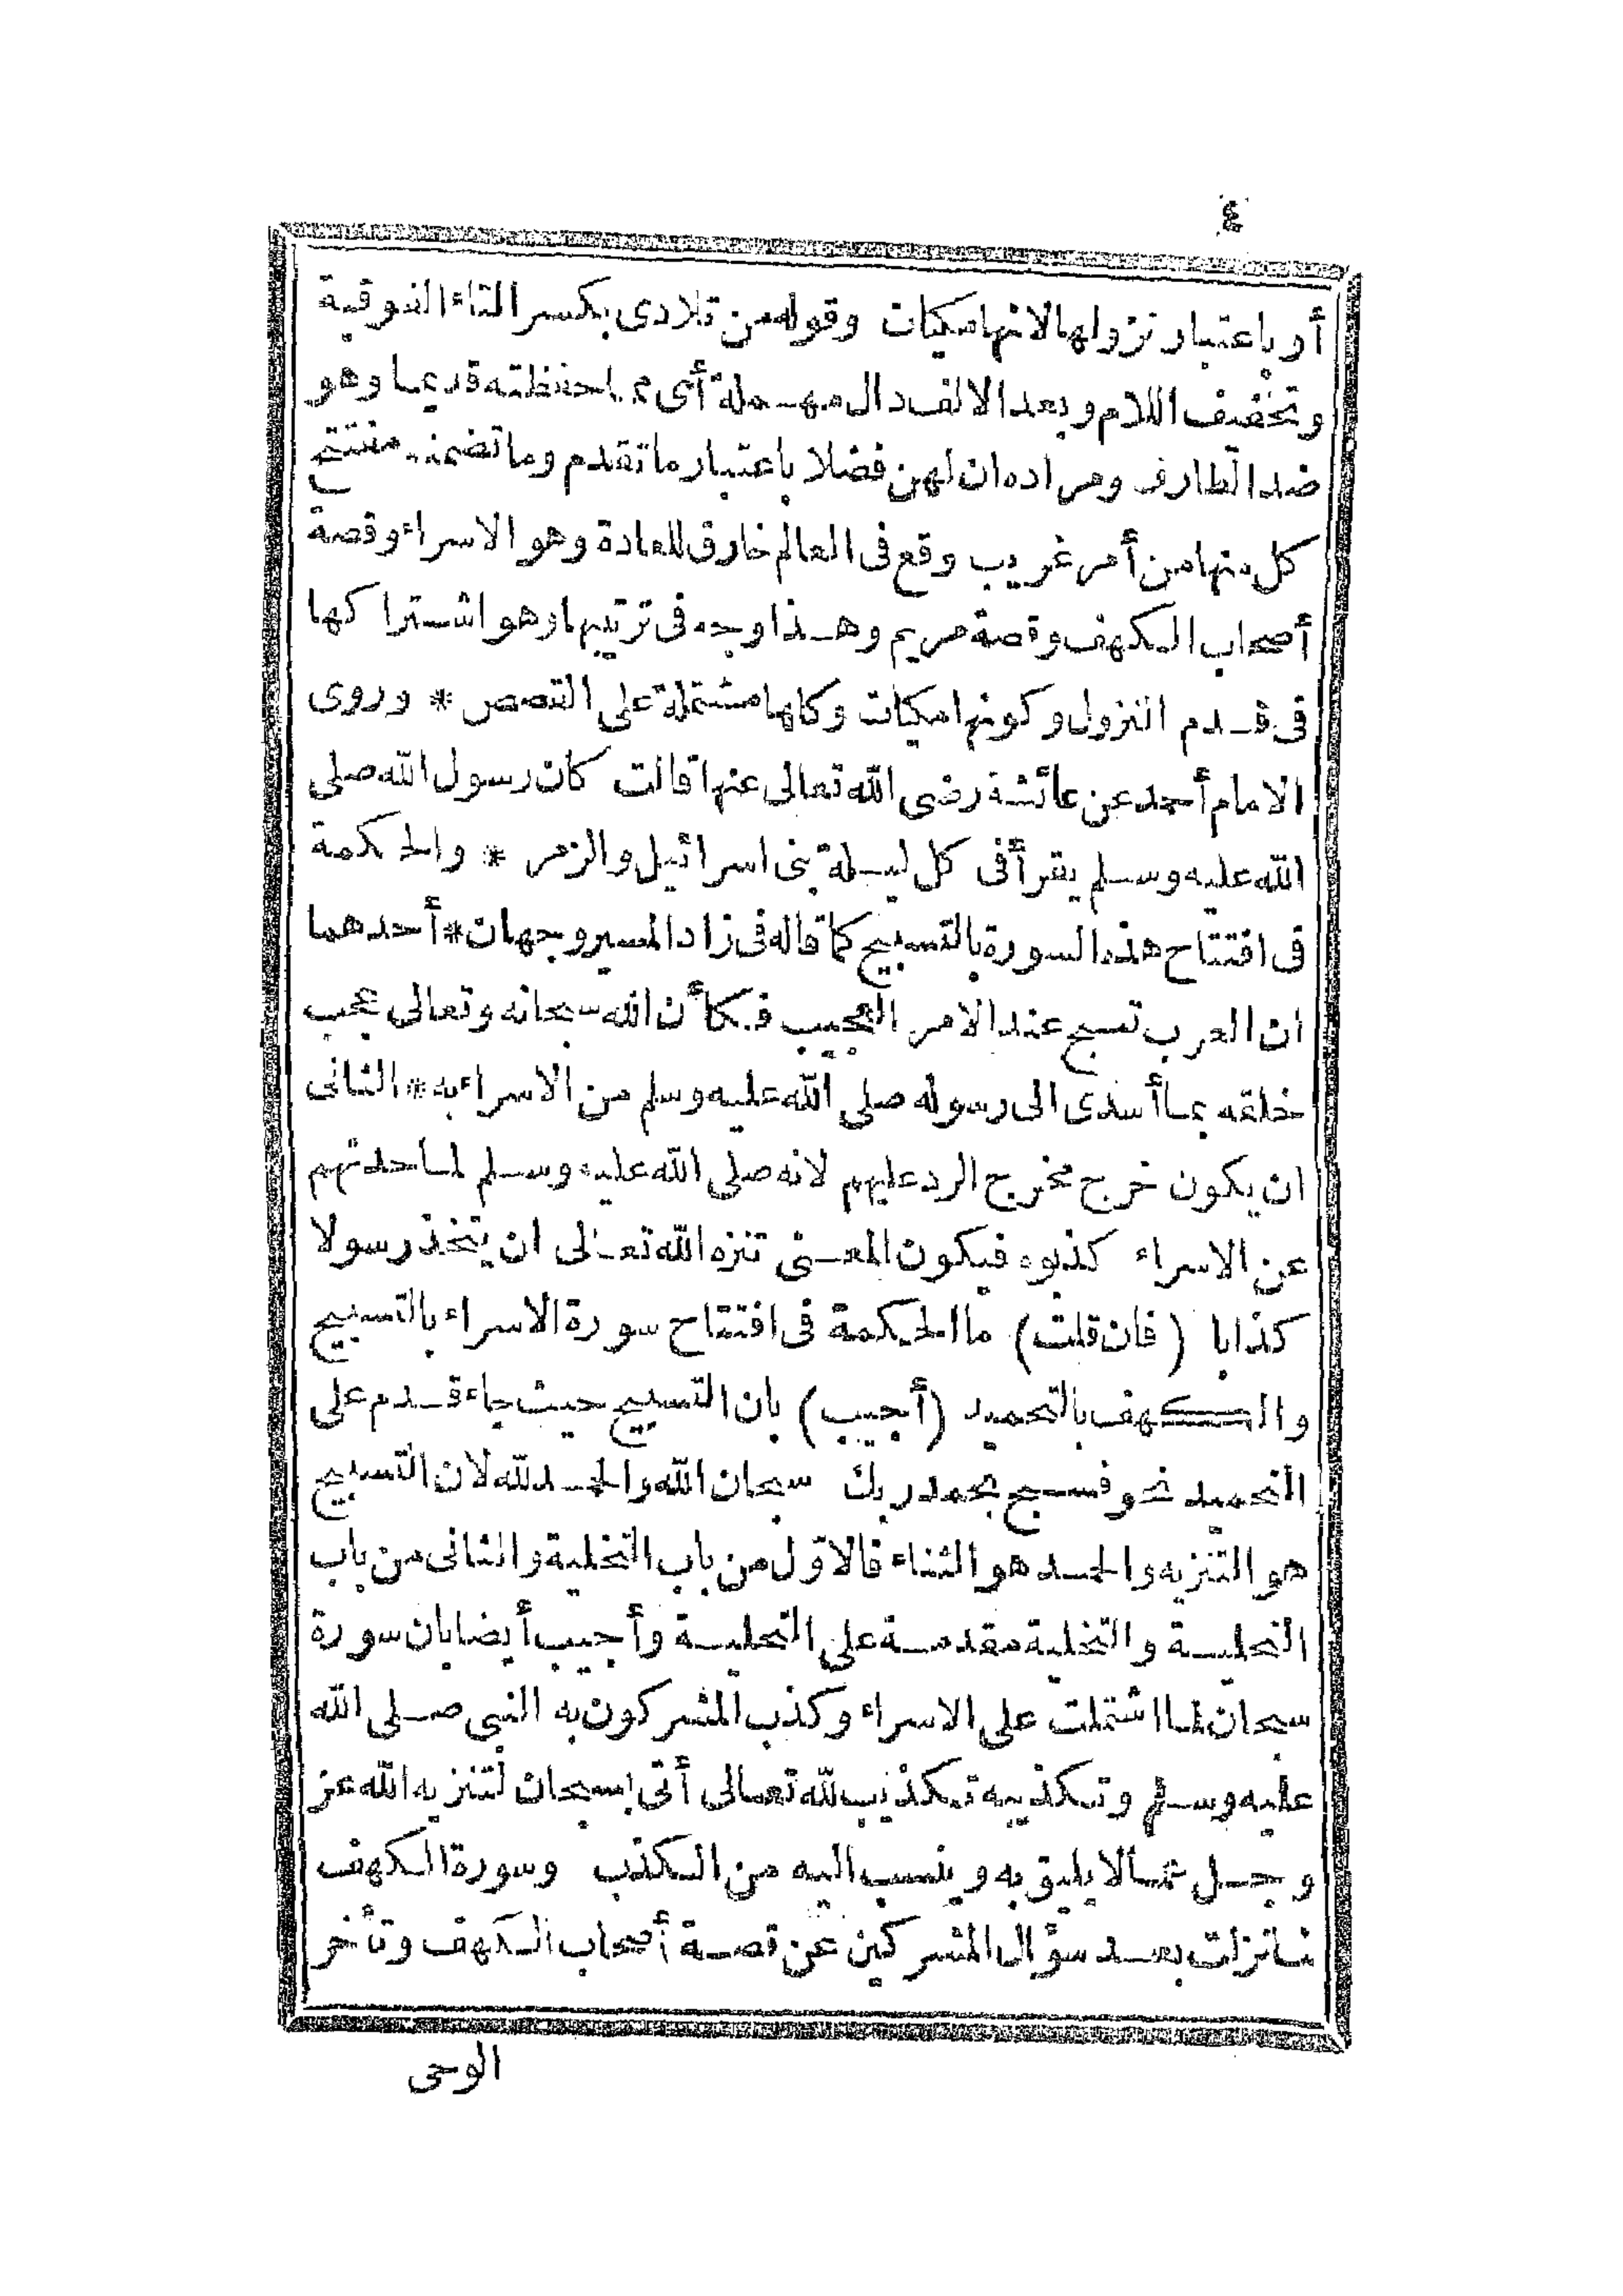 ٤
أو باعتبار نزولها لانها مكيات وقوله من تلادى بكسر التاء الفوقية
وتخفيف اللام وبعد الالف دال مهملة أى مما حفظته قديما وهو
ضد الطارف ومراده ان لهن فضلا باعتبار ما تقدم وما تضمنه مفتتح
كل منها من أمر غريب وقع فى العالم خارق للعادة وهو الاسراء وقصة
أصحاب الكهف وقصة مريم وهذا وجه فى ترتيبها وهو اشتراكها
فى قدم النزول وكونها مكيات وكلها مشتملة على القصص * وروى
الامام أحمد عن عائشة رضى الله تعالى عنها قالت كان رسول الله صلى
الله عليه وسلم يقرأ فى كل ليلة بنى اسرائيل والزمر * والحكمة
فى افتتاح هذه السورة بالتسبيح كما قاله فى زاد المسير وجهان * أحدهما
ان العرب تسبح عند الامر العجيب فكأن الله سبحانه وتعالى عجب
خلقه بما أسدى الى رسوله صلى الله عليه وسلم من الاسراء به * الثانى
ان يكون خرج مخرج الرد عليهم لانه صلى الله عليه وسلم لما حدثهم
عن الاسراء كذبوه فيكون المعنى تنزه الله تعالى ان يتخذ رسولا
كذابا (فان قلت) ما الحكمة فى افتتاح سورة الاسراء بالتسبيح
والكهف بالتحميد (أجيب) بان التسبيح حيث جاء قدم على
التحميد نحو فسبح بحمد ربك سبحان الله والحمد لله لان التسبيح
هو التنزيه والحمد هو الثناء فالاوّل من باب التخلية والثانى من باب
التحلية والتخلية مقدمة على التحلية وأجيب أيضا بان سورة
سبحان لما اشتملت على الاسراء وكذب المشركون به النبى صلى الله
عليه وسلم وتكذيبه تكذيب لله تعالى أتى بسبحان لتنزيه الله عز
وجل عما لا يليق به وينسب اليه من الكذب وسورة الكهف
لما نزلت بعد سؤال المشركين عن قصة أصحاب الكهف وتأخر
الوحى